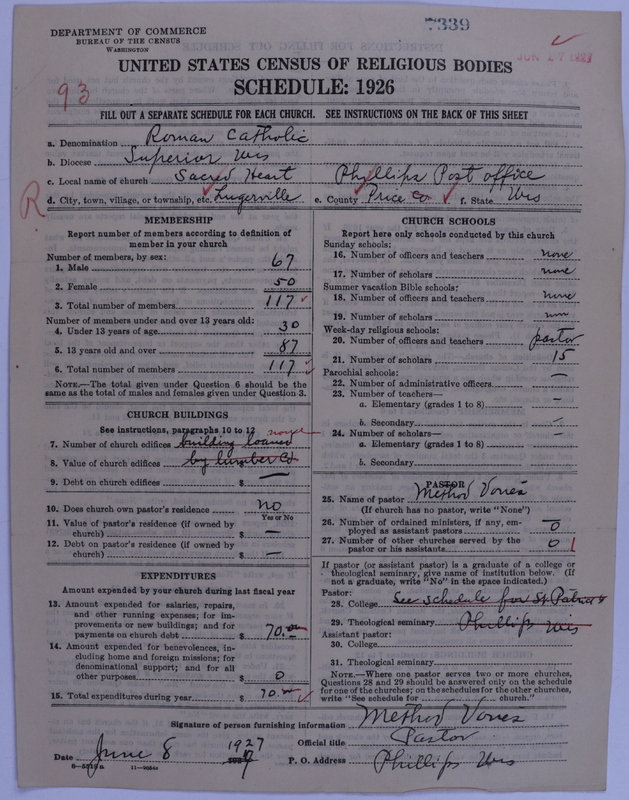 7339
DEPARTMENT OF COMMERCE
BUREAU OF THE CENSUS
WASHINGTON
JUN 27 1927
UNITED STATES CENSUS OF RELIGIOUS BODIES
93
SCHEDULE: 1926
FILL OUT A SEPARATE SCHEDULE FOR EACH CHURCH. SEE INSTRUCTIONS ON THE BACK OF THIS SHEET
a. Denomination Roman Catholic
b. Diocese Superior Wis
c. Local name of church Sacred Heart Phillips Post office
R
d. City, town, village, or township, etc. Lugerville e. County Price Co f. State Wis
MEMBERSHIP
Report number of members according to definition of
member in your church
Number of members, by sex:
1. Male 67
2. Female 50
3. Total number of members 117
Number of members under and over 13 years old:
4. Under 13 years of age 30
5. 13 years old and over 87
6. Total number of members 117
NOTE.—The total given under Question 6 should be the
same as the total of males and females given under Question 3.
CHURCH BUILDINGS
See instructions, paragraphs 10 to 12 none
7. Number of church edifices building loaned
8. Value of church edifices by lumber Co
9. Debt on church edifices $ —
10. Does church own pastor's residence No
Yes or No
11. Value of pastor's residence (if owned by
church) $ —
12. Debt on pastor's residence (if owned by
church) $ —
EXPENDITURES
Amount expended by your church during last fiscal year
13. Amount expended for salaries, repairs,
and other running expenses; for im-
provements or new buildings; and for
payments on church debt $ 70.00
14. Amount expended for benevolences, in-
cluding home and foreign missions; for
denominational support; and for all
other purposes $ 0
15. Total expenditures during year $ 70.00
CHURCH SCHOOLS
Report here only schools conducted by this church
Sunday schools:
16. Number of officers and teachers none
17. Number of scholars none
Summer vacation Bible schools:
18. Number of officers and teachers none
19. Number of scholars non
Week-day religious schools:
20. Number of officers and teachers pastor
21. Number of scholars 15
Parochial schools:
22. Number of administrative officers —
23. Number of teachers—
a. Elementary (grades 1 to 8) —
b. Secondary —
24. Number of scholars— —
a. Elementary (grades 1 to 8)
b. Secondary
PASTOR
25. Name of pastor Method Vones
(If church has no pastor, write "None")
26. Number of ordained ministers, if any, em-
ployed as assistant pastors 0
27. Number of other churches served by the
pastor or his assistants 0 1
If pastor (or assistant pastor) is a graduate of a college or
theological seminary, give name of institution below. (If
not a graduate, write "No" in the space indicated.)
Pastor:
28. College See schedule for St Patrick's
29. Theological seminary Phillips Wis
Assistant pastor:
30. College
31. Theological seminary
NOTE.—Where one pastor serves two or more churches,
Questions 28 and 29 should be answered only on the schedule
for one of the churches; on the schedules for the other churches,
write "See schedule for church."
Signature of person furnishing information Method Vones
Date June 8 1927 Official title Pastor
P. O. Address Phillips Wis